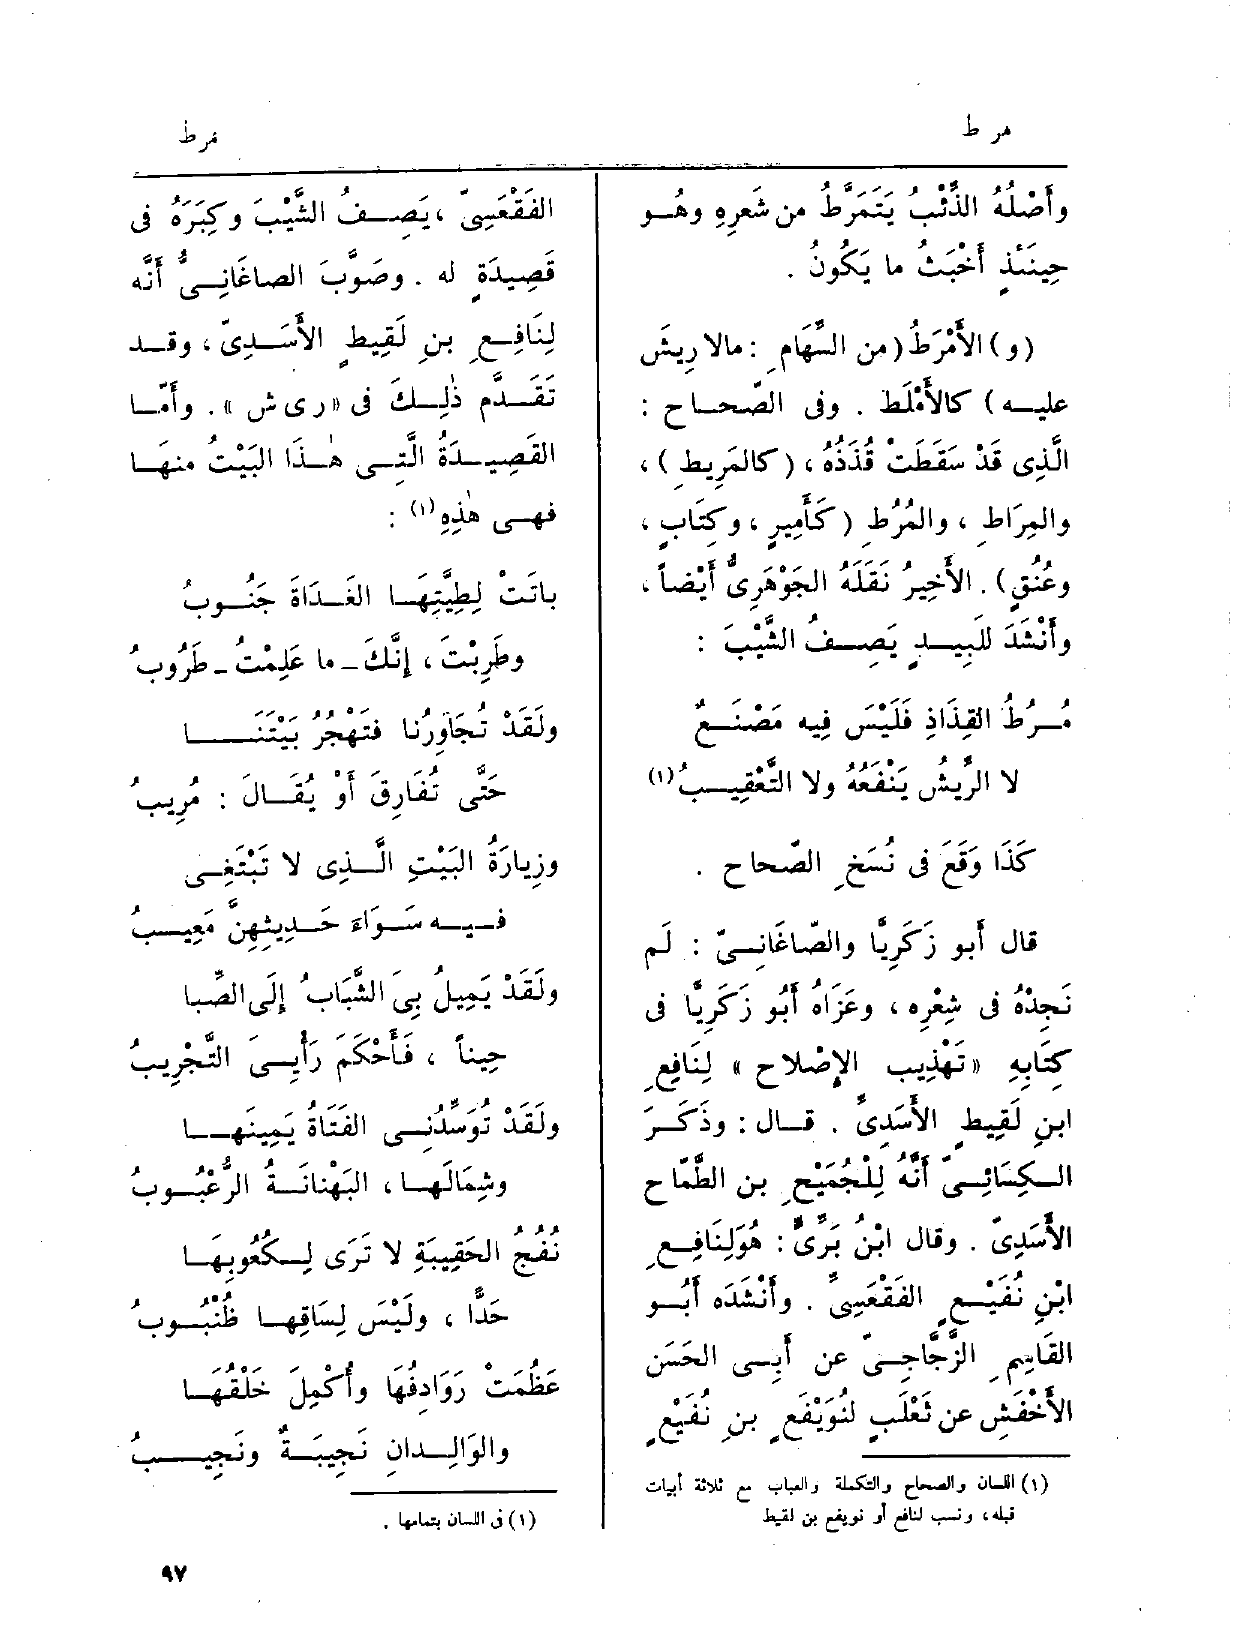 مرط
مرط
وأَصْلُهُ الذِّئْبُ يَتَمَرَّطُ من شَعرِهِ وهُــو
حِينَئذٍ أَخْبَثُ ما يَكُونُ .
(و) الأَمْرَطُ (من السِّهَامِ : مالا رِيشَ
عليــه) كالأَمْلَطِ . وفى الصّحــاح :
الَّذِى قَدْ سَقَطَتْ قُذَذُهُ ، (كالمَرِيطِ) ،
والمِرَاطِ ، والمُرُطِ (كَأَمِيرٍ ، وكِتَابٍ ،
وعُنُقٍ) . الأَخِيرُ نَقَلَهُ الجَوْهَرِىُّ أَيْضاً ،
وأَنْشَدَ للَبِيــدٍ يَصِــفُ الشَّيْبَ :
مُــرُطُ القِذَاذِ فَلَيْسَ فِيهِ مَصْنَــعٌ
لا الرِّيشُ يَنْفَعُهُ ولا التَّعْقِيــبُ (١)
كَذَا وَقَعَ فى نُسَخِ الصّحاح .
قال أَبو زَكَرِيَّا والصّاغَانِــىّ : لَم
نَجِدْهُ فى شِعْرِه ، وعَزَاهُ أَبُو زَكَرِيَّا فى
كِتَابِهِ «تَهْذِيب الإِصْلاح» لِنَافِعِ
ابنِ لَقِيطٍ الأَسَدِىّ . قــال : وذَكَــرَ
الــكِسَائِــىّ أَنَّهُ لِلْجُمَيْحِ بن الطَّمّاح
الأَسَدِىّ . وقال ابْنُ بَرِّىّ : هُوَ لِنَافِــعِ
ابْنِ نُفَيْــعٍ الفَقْعَسِىّ . وأَنْشَدَه أَبُــو
القَاسِمِ الزَّجَّاجِــىّ عن أَبِــى الحَسَن
الأَخْفَشِ عن ثَعْلَبٍ لنُوَيْفَعِ بنِ نُفَيْعٍ
(١) اللسان والصحاح والتكملة والعباب مع ثلاثة أبيات
قبله، ونسب لنافع أو نويفع بن لقيط
الفَقْعَسِىّ ، يَصِــفُ الشَّيْبَ وكِبَرَهُ فى
قَصِيدَةٍ له . وصَوَّبَ الصاغَانِــىُّ أَنَّه
لِنَافِــعِ بنِ لَقِيطٍ الأَسَــدِىّ ، وقــد
تَقَــدَّم ذٰلِــكَ فى «رى ش» . وأَمّــا
القَصِيــدَةُ الَّتِــى هٰــذَا البَيْتُ منهــا
فهــى هٰذِهِ (١) :
باتَتْ لِطِيَّتِهَــا الغَــدَاةَ جَنُــوبُ
وطَرِبْتَ ، إِنَّكَ ــ ما عَلِمْتُ ــ طَرُوبُ
ولَقَدْ تُجَاوِرُنا فتَهْجُرُ بَيْتَنَــا
حَتَّى تُفَارِقَ أَوْ يُقَــالَ : مُرِيبُ
وزِيارَةُ البَيْتِ الَّــذِى لا تَبْتَغِــى
فــيــه سَــوَاءَ حَــدِيثِهِنَّ مَعِيــبُ
ولَقَدْ يَمِيلُ بِىَ الشَّبَابُ إِلَى الصِّبا
حِيناً ، فَأَحْكَمَ رَأْيِــىَ التَّجْرِيبُ
ولَقَدْ تُوَسِّدُنِــى الفَتَاةُ يَمِينَهــا
وشِمَالَهــا ، البَهْنَانَــةُ الرُّعْبُــوبُ
نُفُجُ الحَقِيبَةِ لا تَرَى لِــكُعُوبِهَــا
حَدًّا ، ولَيْسَ لِسَاقِهــا ظُنْبُــوبُ
عَظُمَتْ رَوَادِفُهَا وأُكْمِلَ خَلْقُهَــا
والوَالِــدانِ نَجِيبَــةٌ ونَجِيــبُ
(١) فى اللسان بتمامها .
٩٧